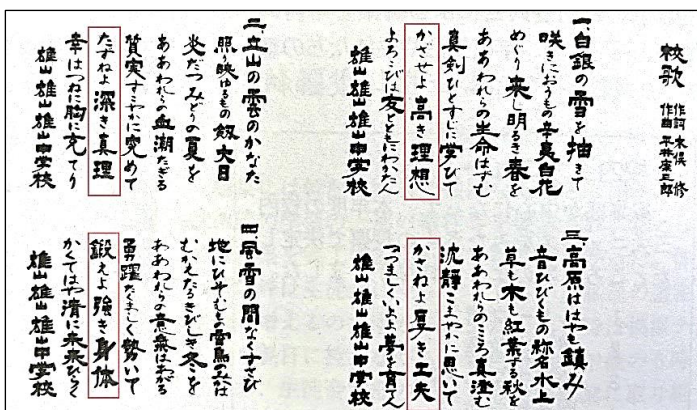 校歌
作詞 木俣 修
作曲 平井康三郎
一、白銀の雪を抽きて
咲きにおうもの辛夷白花
めぐり来し明るき春を
ああわれらの生命はずむ
真剣ひとすじに学びて
かざせよ高き理想
よろこびは友とともにわかたん
雄山雄山雄山中学校
二、立山の雲のかなた
照り映ゆるもの劔大日
炎だつみどりの夏を
ああわれらの血潮たぎる
質実すこやかに究めて
たずねよ深き真理
幸はつねに胸に充てり
雄山雄山雄山中学校
三、高原ははやも鎮み
音ひびくもの称名水上
草も木も紅葉する秋を
ああわれらのこころ真澄む
沈静こまやかに思いて
かさねよ厚き工夫
つつましくいよよ夢を育てん
雄山雄山雄山中学校
四、風雪の間なくすさび
地にひそむもの雷鳥のみか
むかえたるきびしき冬を
ああわれらの意気はあがる
勇躍たくましく勢いて
鍛えよ強き身体
かくてはや清に未来ひらく
雄山雄山雄山中学校